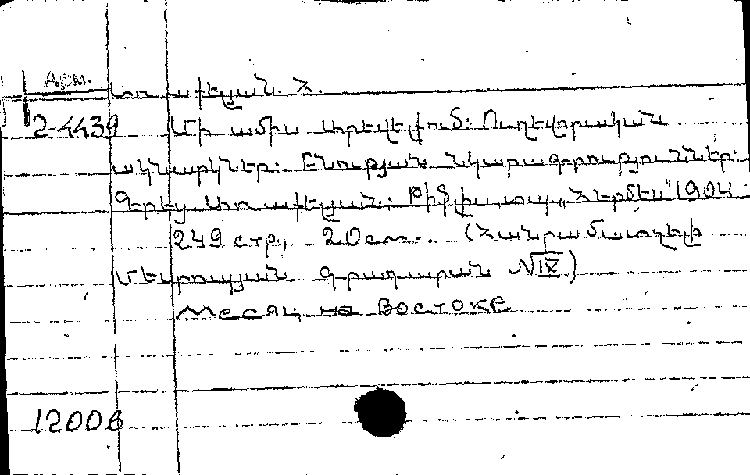 Арм.
Առաքելյան. Հ.
2-4439 Մի ամիս Արևելքում: Ուղևորական
ակնարկներ: Բնության նկարագրություններ:
Գրեց Առաքելյան. Թիֆլիս, տպ „Հերմես" 1904
249 стр., 20 см.. (Հանրամատչելի
Մեսրոպյան գրադարան №IX.)
Месяц на Востоке
12006